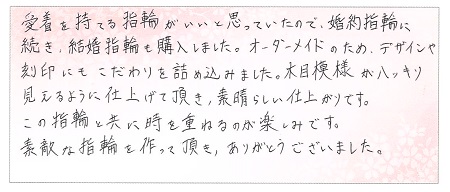 愛着を持てる指輪がいいと思っていたので、婚約指輪に
続き、結婚指輪も購入しました。オーダーメイドのため、デザインや
刻印にもこだわりを詰め込みました。木目模様がハッキリ
見えるように仕上げて頂き、素晴らしい仕上がりです。
この指輪と共に時を重ねるのが楽しみです。
素敵な指輪を作って頂き、ありがとうございました。